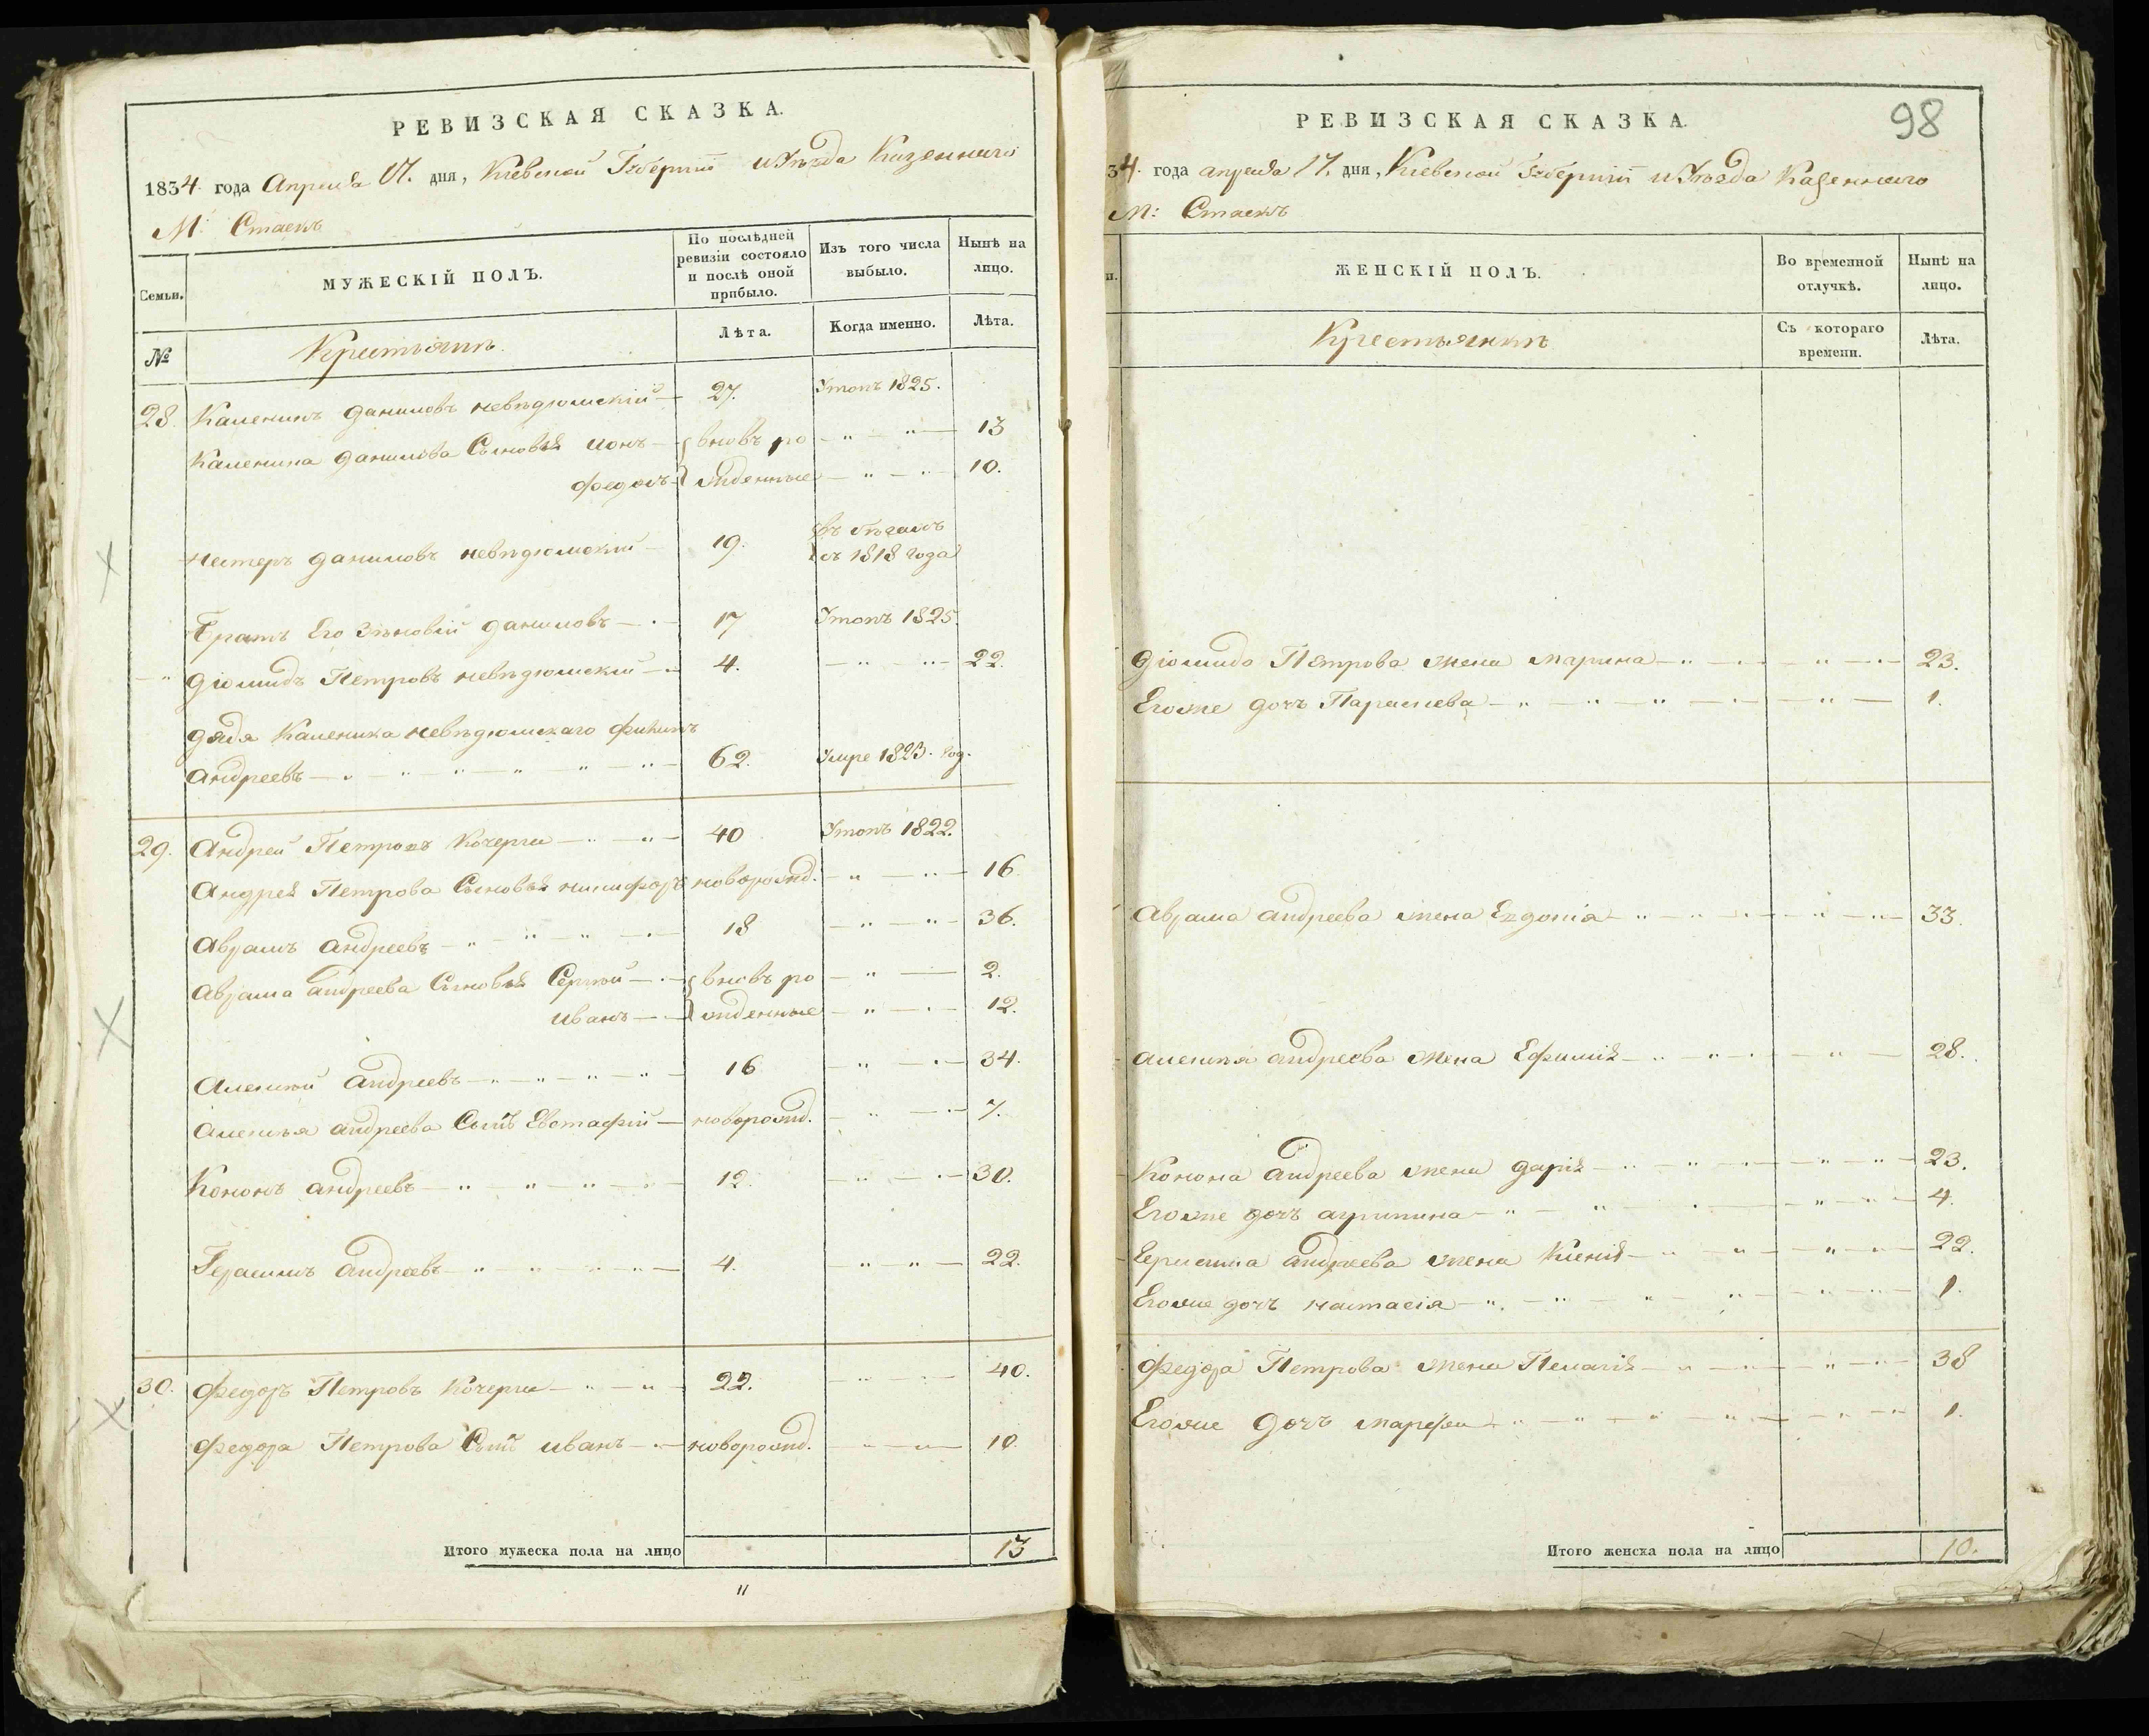 РЕВИЗСКАЯ СКАЗКА.
1834. года Апреля 17. дня, Кіевской Губерніи и Уѣзда Казеннаго
М: Стаекъ
Семьи.
МУЖЕСКІЙ ПОЛЪ.
По послѣдней ревизіи состояло и послѣ оной прибыло.
Изъ того числа выбыло.
Нынѣ на лицо.
№
Крестьянъ
Лѣта.
Когда именно.
Лѣта.
28. Каленикъ Даниловъ 27. Утопъ 1825.
Каленика Данилова Сыновья Іонъ вновь ро " " 13
Федоръ жденные " " 10.
Нестеръ Даниловъ 19. въ бѣгахъ
съ 1818 года
Братъ Его Зѣновій Даниловъ 17 Утопъ 1825.
" Діомидъ Петровъ 4. " " 22.
Дядя Каленика
Андреевъ 62. Умре 1823. год.
29. Андрей Петровъ Кочерга 40 Утопъ 1822.
Андрея Петрова Сыновья Никифоръ новорожд. " " 16.
Аврамъ Андреевъ 18 " " 36.
Аврама Андреева Сыновья Сергѣй вновь ро " 2.
Иванъ жденные " 12.
Алексѣй Андреевъ 16 " 34.
Алексѣя Андреева Сынъ Евстафій новорожд. " 7.
Кононъ Андреевъ 12. " 30.
Герасимъ Андреевъ 4. " " 22.
30. Федоръ Петровъ Кочерга 22. " 40.
Федора Петрова Сынъ Иванъ новорожд. " " 10.
Итого мужеска пола на лицо 13
11
98
РЕВИЗСКАЯ СКАЗКА.
34. года апреля 17. дня, Кіевской Губерніи и Уѣзда Казеннаго
М: Стаекъ
и.
ЖЕНСКІЙ ПОЛЪ.
Во временной отлучкѣ.
Нынѣ на лицо.
Крестьянкъ
Съ котораго времени.
Лѣта.
Діомида Петрова жена Марина " " 23.
Егоже дочь Параскева " " " 1.
Аврама Андреева жена Евдокія " " 33.
Алексѣя Андреева жена Ефимія " " 28.
Конона Андреева жена Дарія " " 23.
Егоже дочь Агрипина " " 4.
Герасима Андреева жена Ксенія " " 22.
Егоже дочь Настасія " " 1.
Федора Петрова жена Пелагія " " 38
Егоже дочь Марфа " " 1.
Итого женска пола на лицо 10.